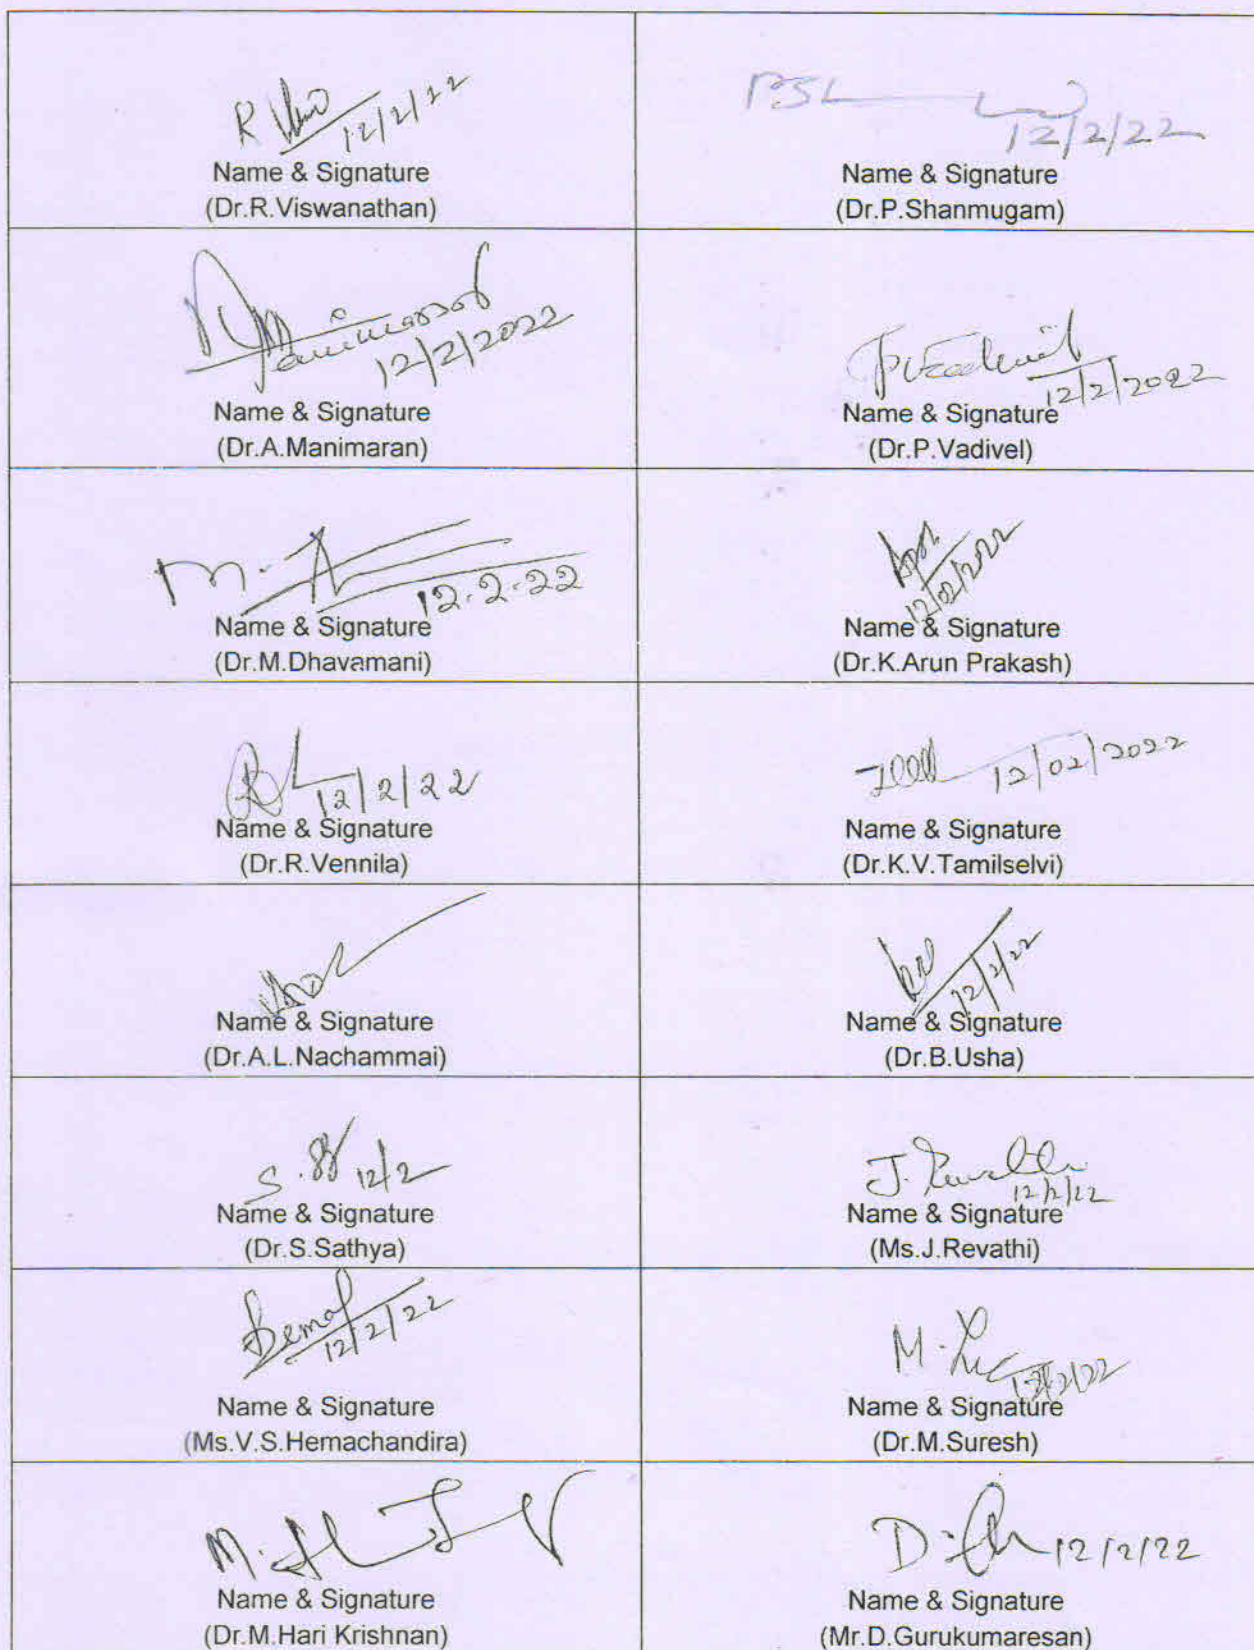 R
12/2/22
Name & Signature
(Dr.R.Viswanathan)
12/2/22
Name & Signature
(Dr.P.Shanmugam)
Manimaran
12/2/2022
Name & Signature
(Dr.A.Manimaran)
12/2/2022
Name & Signature
(Dr.P.Vadivel)
M.
12.2.22
Name & Signature
(Dr.M.Dhavamani)
12/02/2022
Name & Signature
(Dr.K.Arun Prakash)
12/2/22
Name & Signature
(Dr.R.Vennila)
12/02/2022
Name & Signature
(Dr.K.V.Tamilselvi)
Name & Signature
(Dr.A.L.Nachammai)
12/2/22
Name & Signature
(Dr.B.Usha)
S. 12/2
Name & Signature
(Dr.S.Sathya)
J. Revathi
12/2/22
Name & Signature
(Ms.J.Revathi)
12/2/22
Name & Signature
(Ms.V.S.Hemachandira)
M.
12/2/22
Name & Signature
(Dr.M.Suresh)
M.
Name & Signature
(Dr.M.Hari Krishnan)
D. 12/2/22
Name & Signature
(Mr.D.Gurukumaresan)